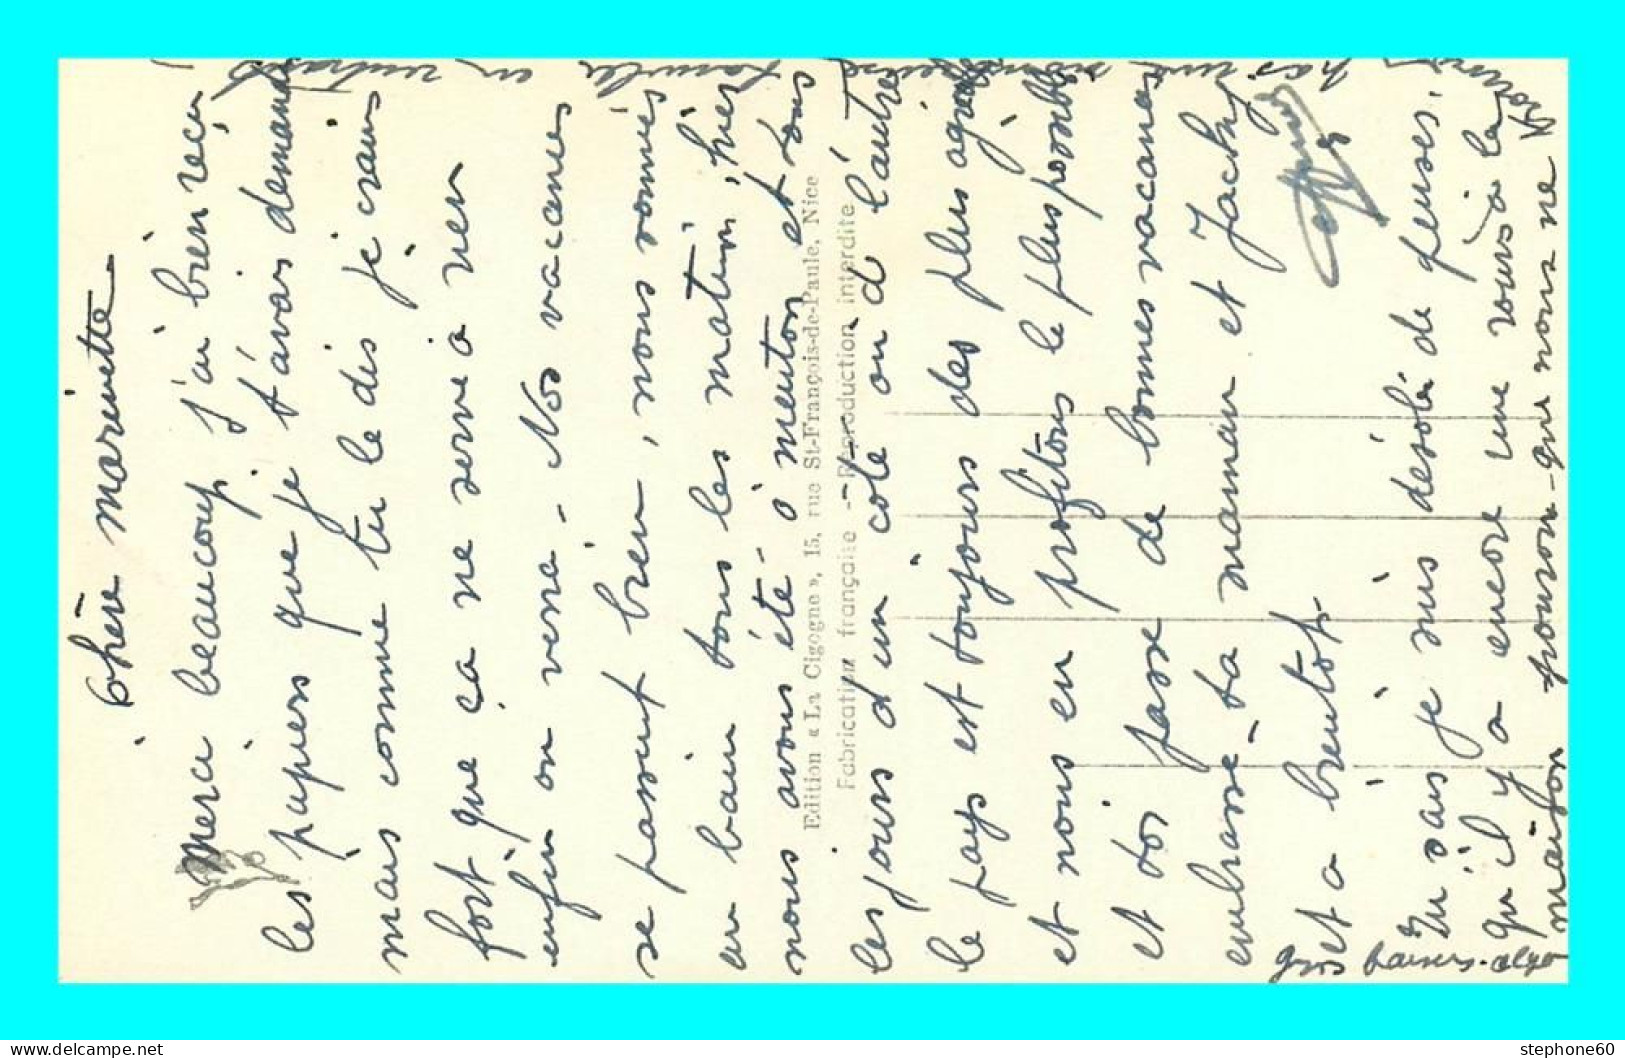 chère marinette
Merci beaucoup j'ai bien reçu
les papiers que je t'avais demandé
mais comme tu le dis je crains
fort que ça ne serve a rien
enfin on verra - Nos vacances
se passent bien, nous sommes
au bain tous les matin, hier
nous avons été a menton et tous
les jours d'un coté ou d l'autre
le pays est toujours des plus agréable
et nous en profitons le plus possible
et toi passe de bonnes vacances
embrasse ta maman et Jacky
et a bientot
gros baisers
Tu sais je suis désolé de penser,
qu'il y a encore une souris a la
maison qui nous ne
pas une
en rentrant
Edition « La Cigogne », 15, rue St-François-de-Paule, Nice
Fabrication française - Reproduction interdite
stephone60
www.delcampe.net